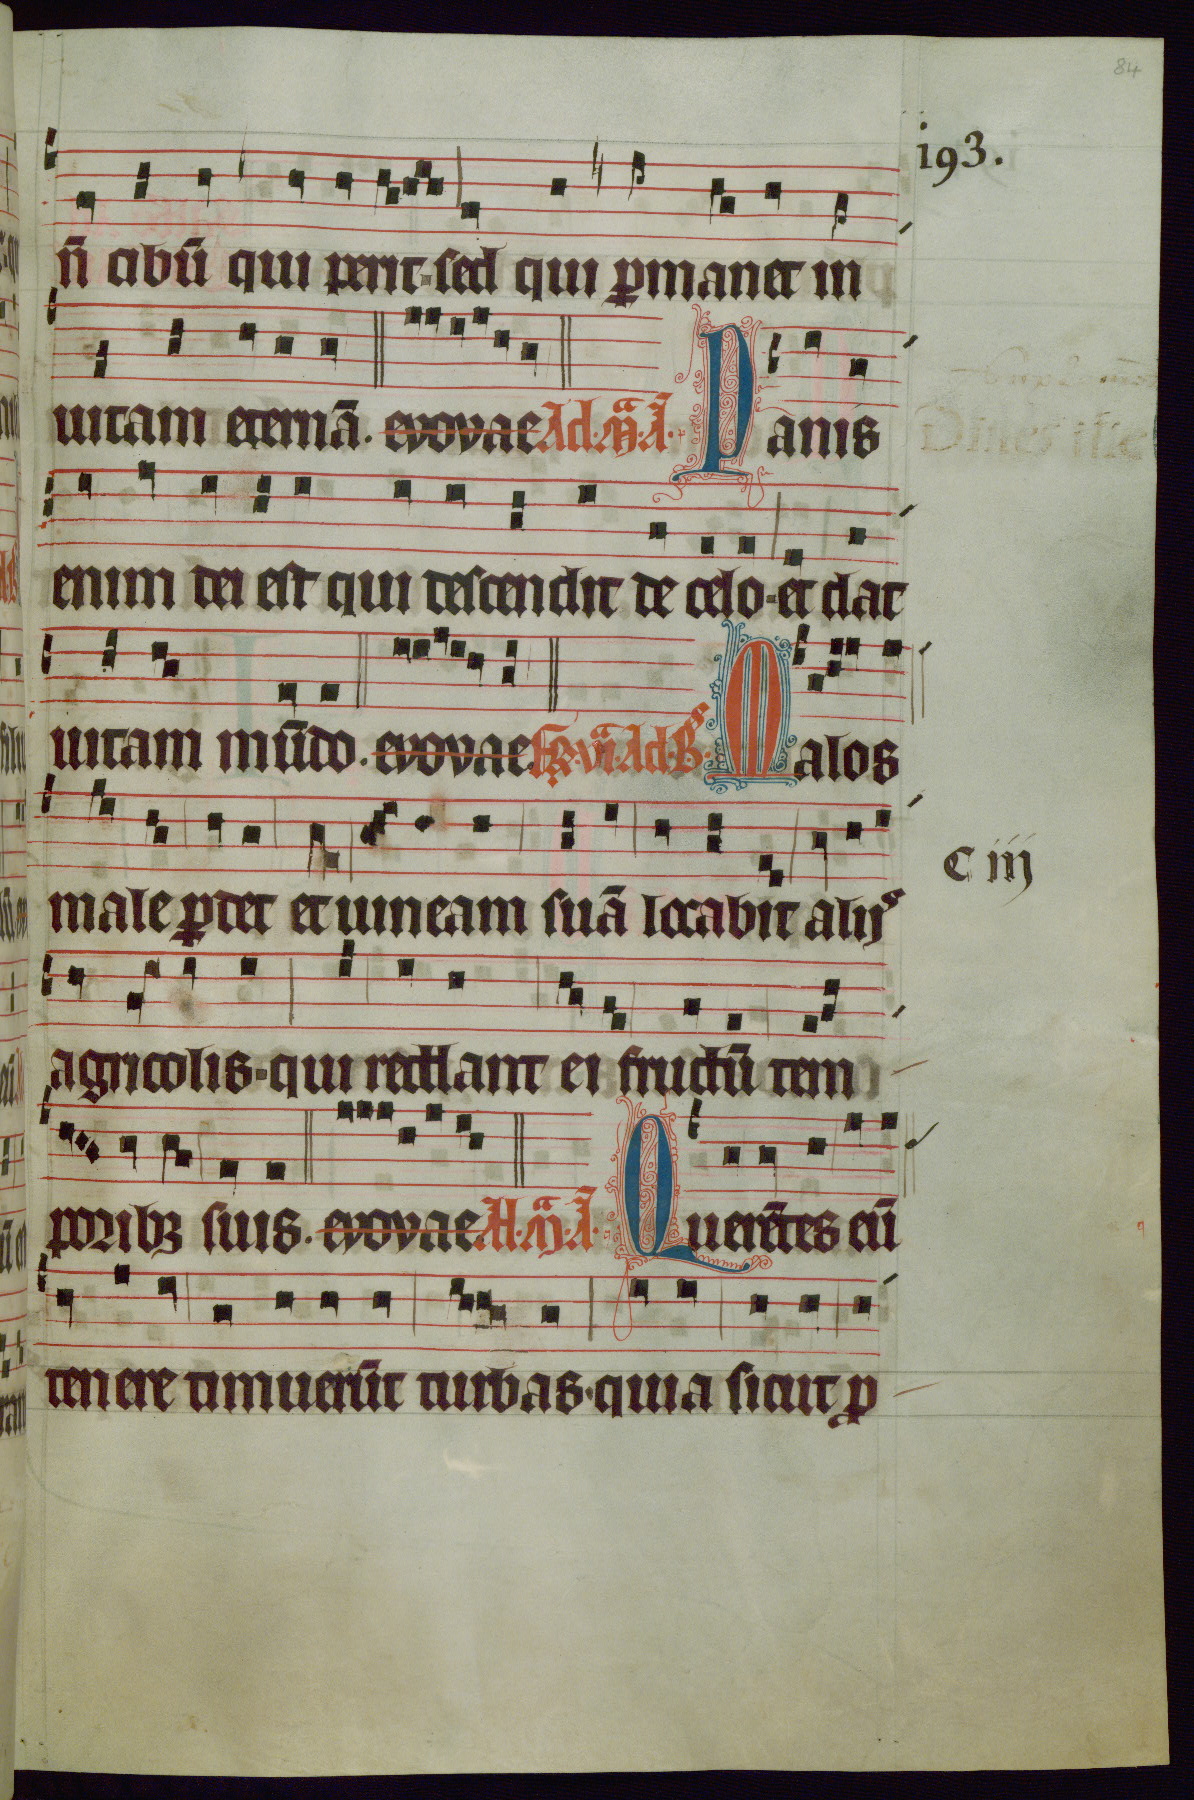 84
193.
n̄ cibū qui perit·sed qui ꝑmanet in
uitam eternā. evovae Ad·M̄·A· Panis
enim dei est qui descendit de celo·et dat
uitam mūdo. evovae fr̄·vi· Ad·B· Malos
male ꝑdet et uineam suā locabit alijs
C iij
agricolis·qui reddant ei fructū tem
poribꝫ suis. evovae Ad·M̄·A· Querētes eū
tenere timuerūt turbas·quia sicut ꝓ